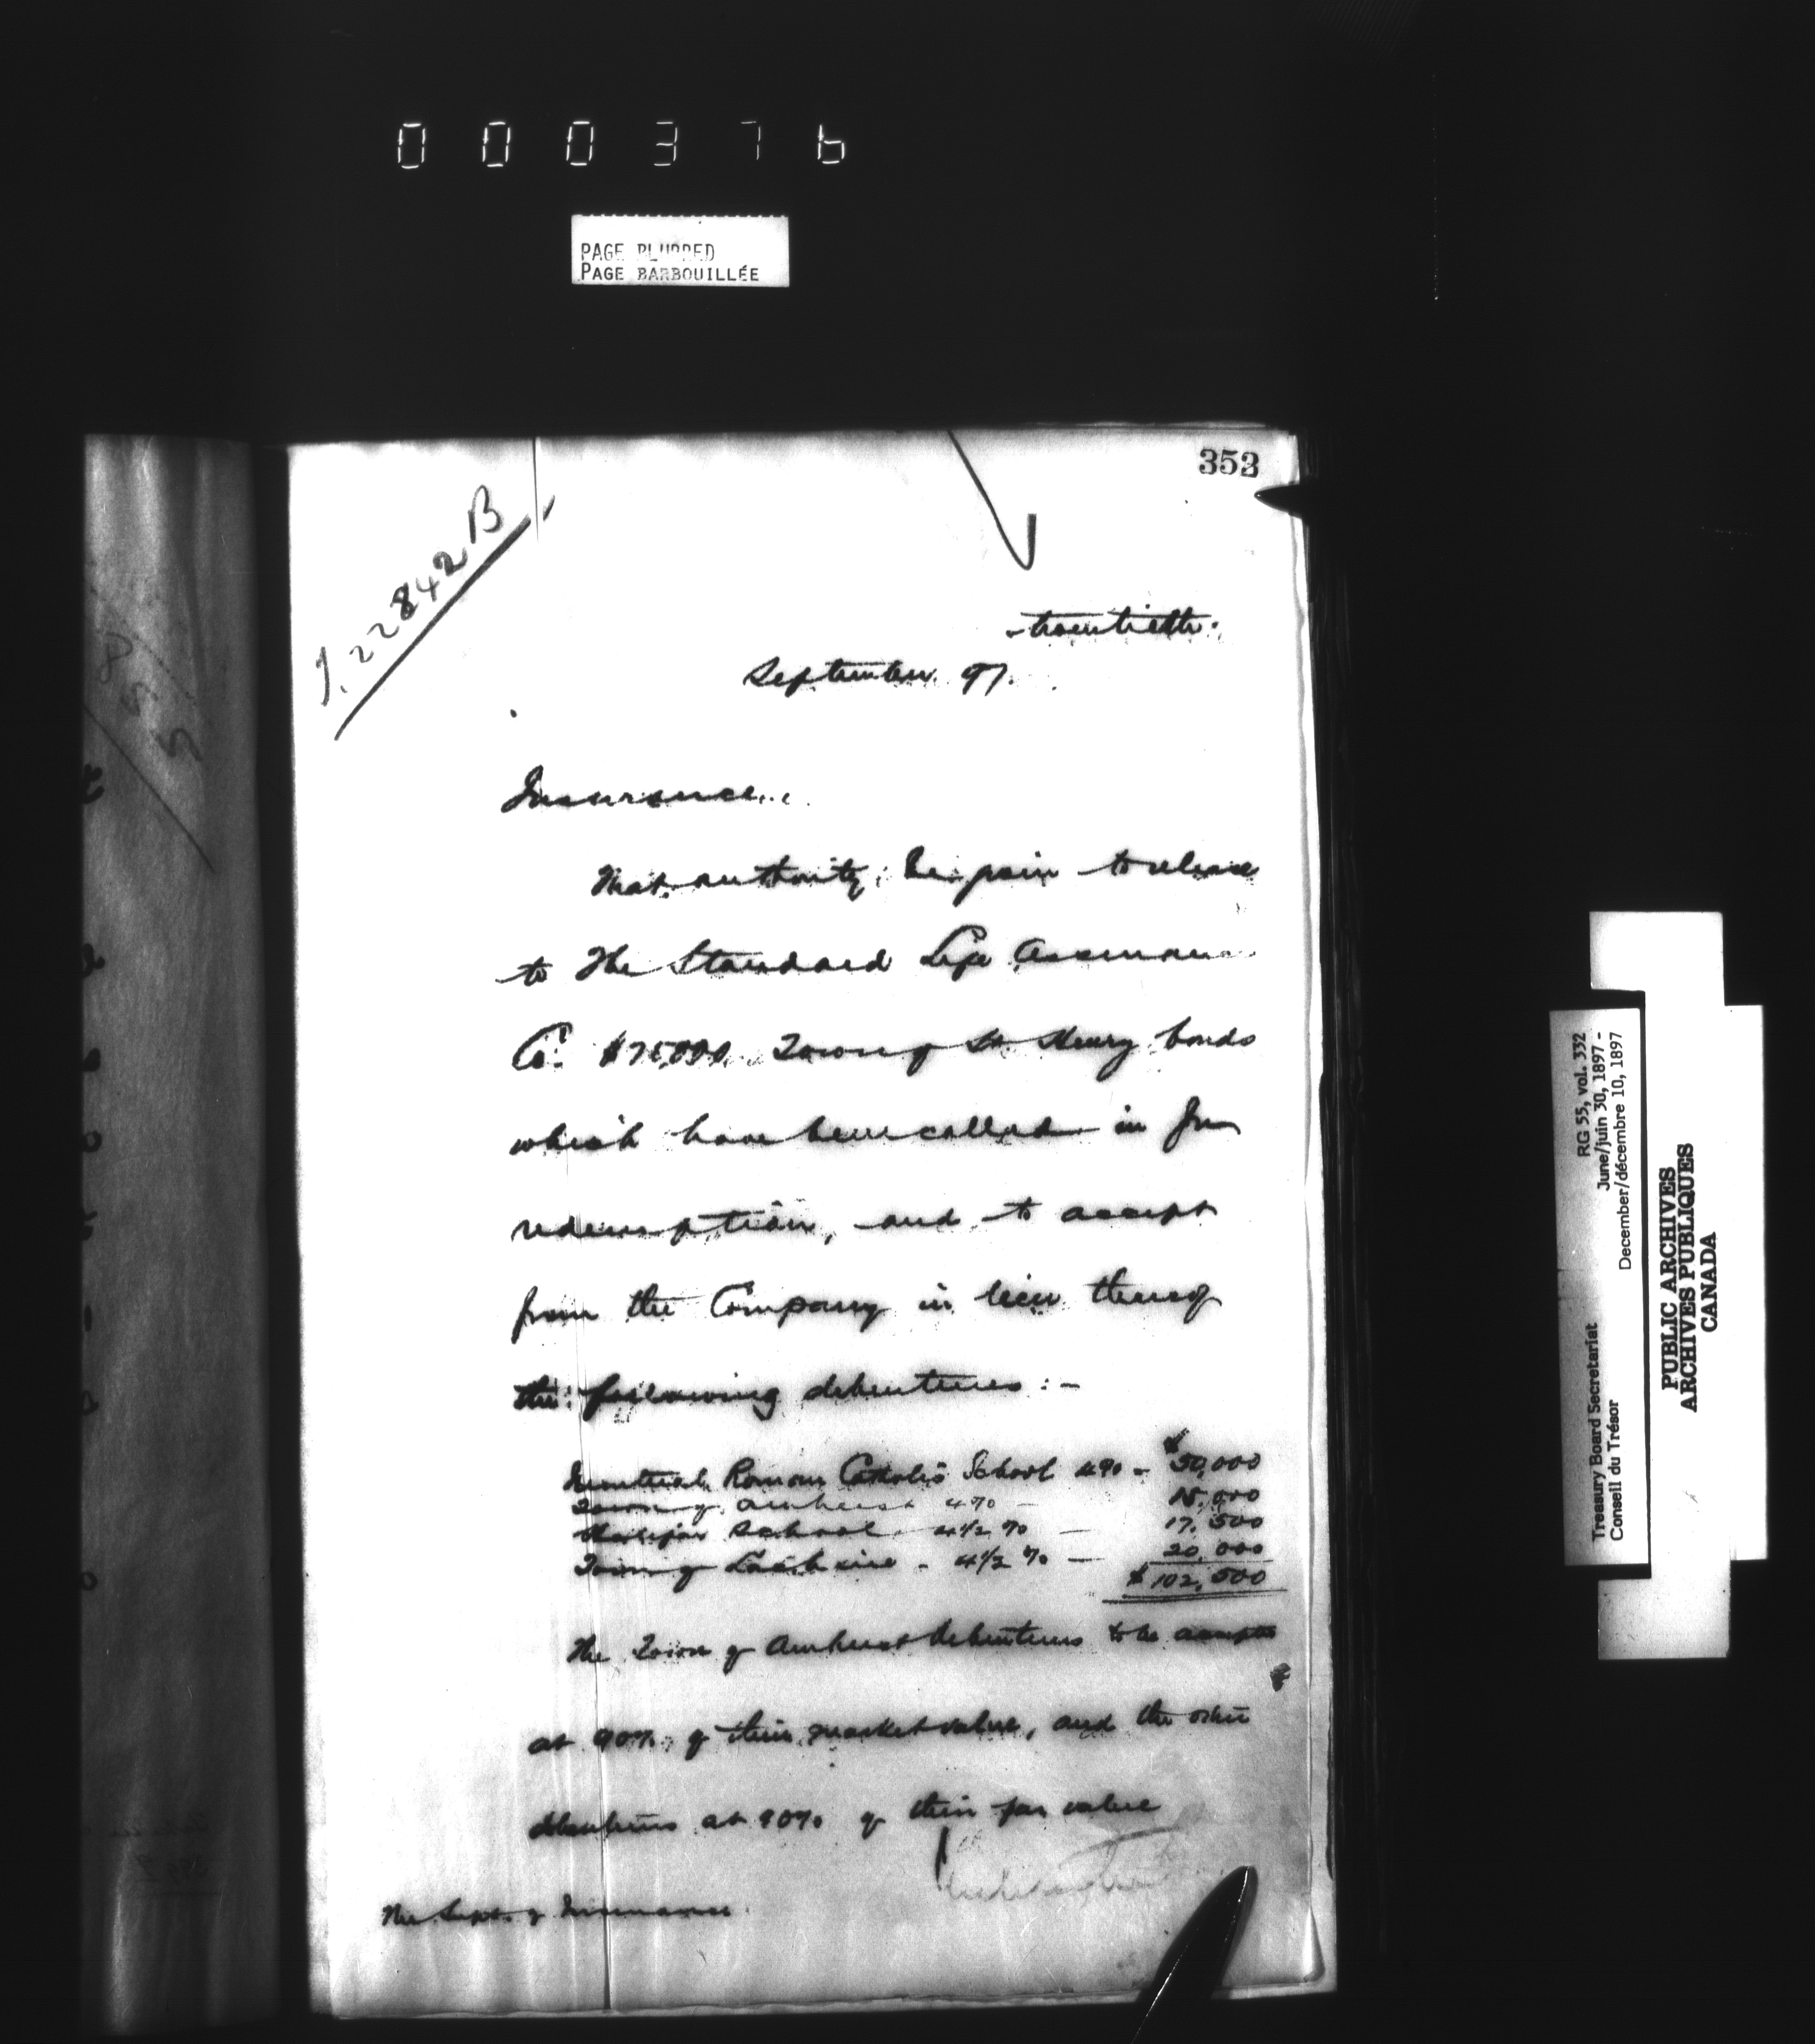 000376
PAGE BLURRED
PAGE BARBOUILLÉE
353
J. 22842 B
twentieth.
September 97.
Insurance.
That authority be given to release
to The Standard Life Assurance
Co. $75,000 Town of St. Henry bonds
which have been called in for
redemption, and to accept
from the Company in lieu thereof
the following debentures:-
Montreal Roman Catholic School 4% - $50,000
Town of Amherst 4% - 15,000
Halifax School 4½% - 17,500
Town of Lachine - 4½% - 20,000
$102,500
The Town of Amherst debentures to be accepted
at 90% of their market value, and the other
debentures at 90% of their par value
The Supt. of Insurance
RG 55, vol. 332
June/juin 30, 1897 -
December/décembre 10, 1897
Treasury Board Secretariat
Conseil du Trésor
PUBLIC ARCHIVES
ARCHIVES PUBLIQUES
CANADA